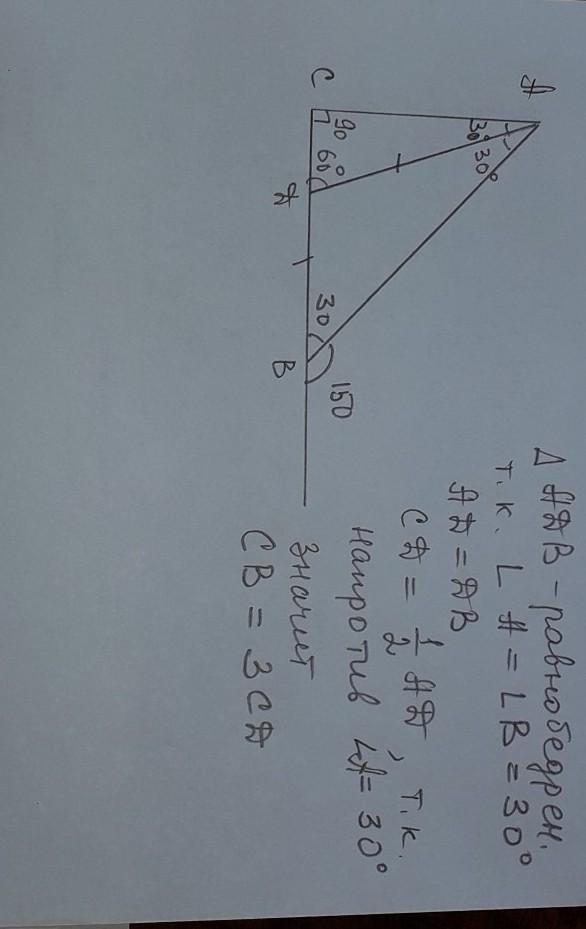 A
30°
30°
C
90
60°
D
30
B
150
Δ ADB - равнобедрен.
т.к. L A = L B = 30°
AD = DB
CD = 1/2 AD, т.к.
напротив LA = 30°
значит
CB = 3CD